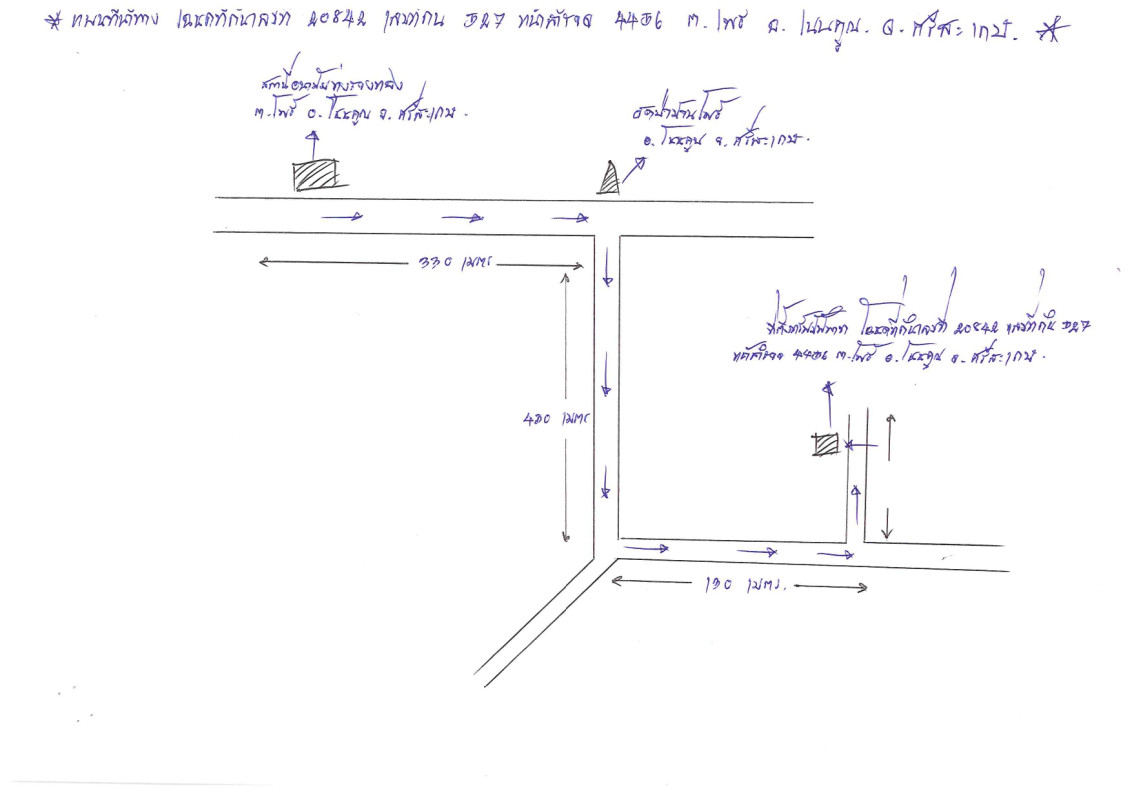 * แผนที่นำทาง โฉนดที่ดินเลขที่ 20842 เลขที่ดิน 527 หน้าสำรวจ 4456 ต. โพธิ์ อ. โนนคูณ. จ. ศรีสะเกษ. *
สถานีอนามัย
ต.โพธิ์ อ.โนนคูณ จ.ศรีสะเกษ.
วัดป่าบ้านโพธิ์
อ.โนนคูณ จ.ศรีสะเกษ.
330 เมตร
ที่ตั้งทรัพย์พิพาท โฉนดที่ดินเลขที่ 20842 เลขที่ดิน 527
หน้าสำรวจ 4456 ต.โพธิ์ อ.โนนคูณ จ.ศรีสะเกษ.
450 เมตร
150 เมตร.